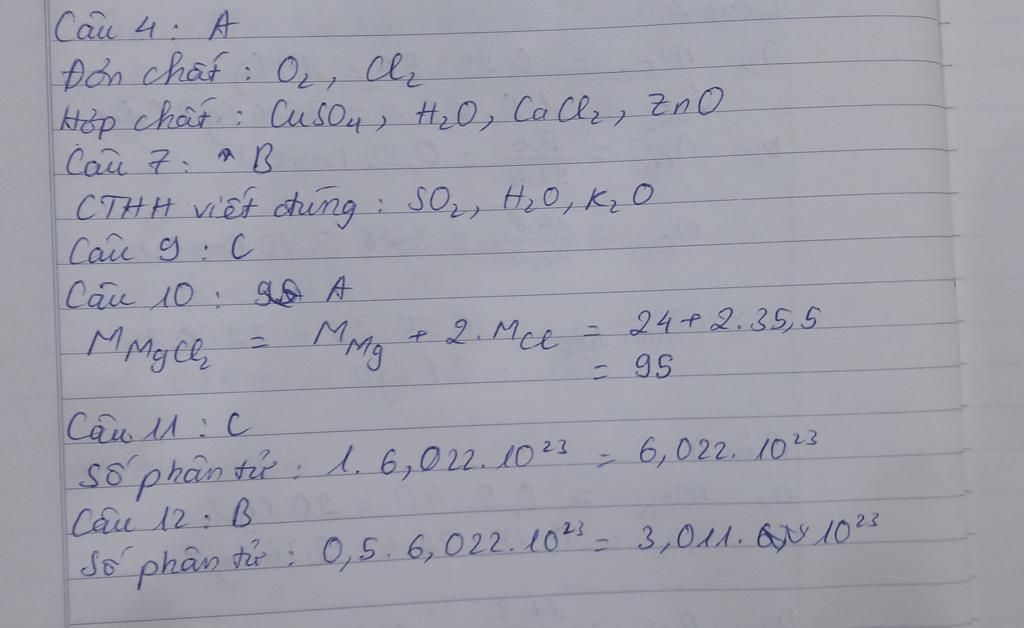 Câu 4 : A
Đơn chất : O₂, Cl₂
Hợp chất : CuSO₄, H₂O, CaCl₂, ZnO
Câu 7 : B
CTHH viết đúng : SO₂, H₂O, K₂O
Câu 9 : C
Câu 10 : A
M MgCl₂ = M Mg + 2. M Cl = 24 + 2.35,5
= 95
Câu 11 : C
Số phân tử : 1. 6,022. 10²³ = 6,022. 10²³
Câu 12 : B
Số phân tử : 0,5. 6,022. 10²³ = 3,011. 10²³